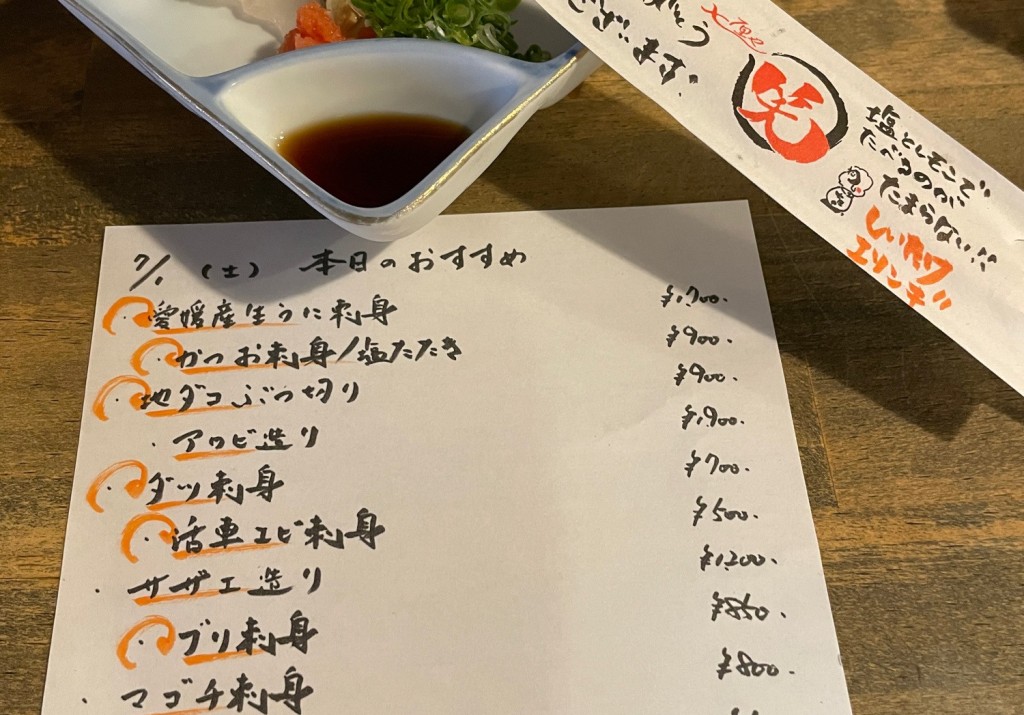 ございます。
笑
塩としそこで
たべるのが
たまらない!!
しいタケ
エリンギ
7/1 (土) 本日のおすすめ
・愛媛産生うに刺身 ¥1,700.
・かつお刺身/塩たたき ¥900.
・地ダコぶつ切り ¥900.
・アワビ造り ¥1,900.
・ダツ刺身 ¥700.
・活車エビ刺身 ¥500.
・サザエ造り ¥1,200.
・ブリ刺身 ¥850.
・マゴチ刺身 ¥800.